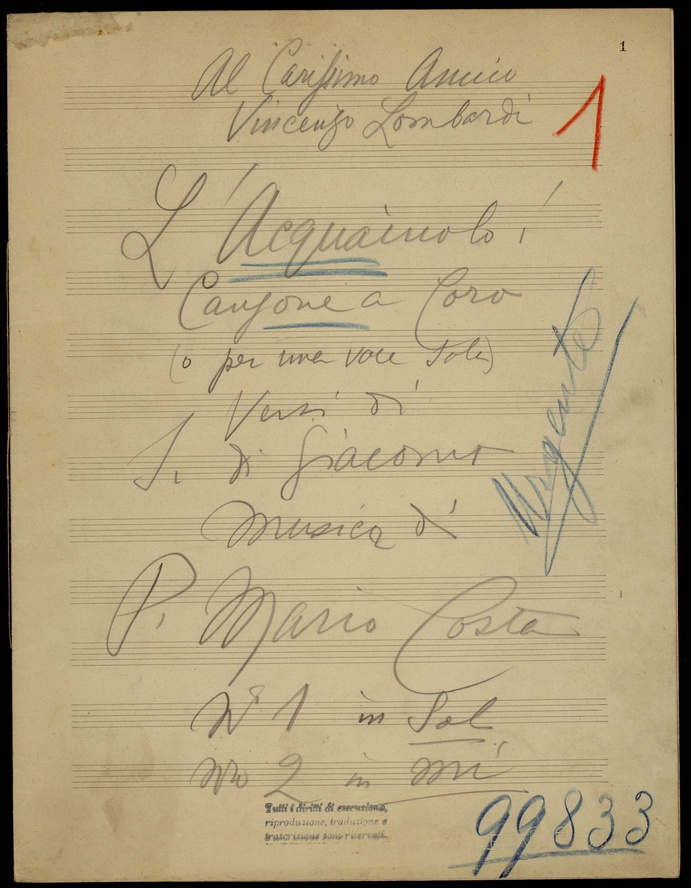 1
Al Carissimo Amico
Vincenzo Lombardi
1
L'Acquaiuolo!
Canzone a Coro
(o per una voce sola)
Versi di
S. di Giacomo
Urgente
Musica di
P. Mario Costa
No 1 in Sol
No 2 in Mi
Tutti i diritti di esecuzione,
riproduzione, traduzione e
trascrizione sono riservati.
99833